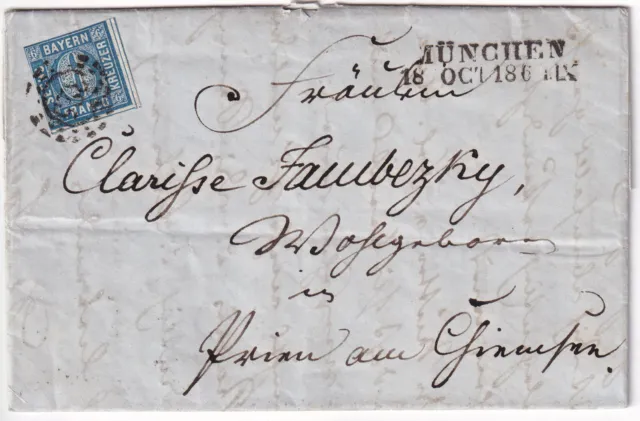 BAYERN
KREUZER
FRANCO
MÜNCHEN
18 OCT 186
Fräulein
Clarisse Jambezky,
Wohlgeboren
in
Prien am Chiemsee.